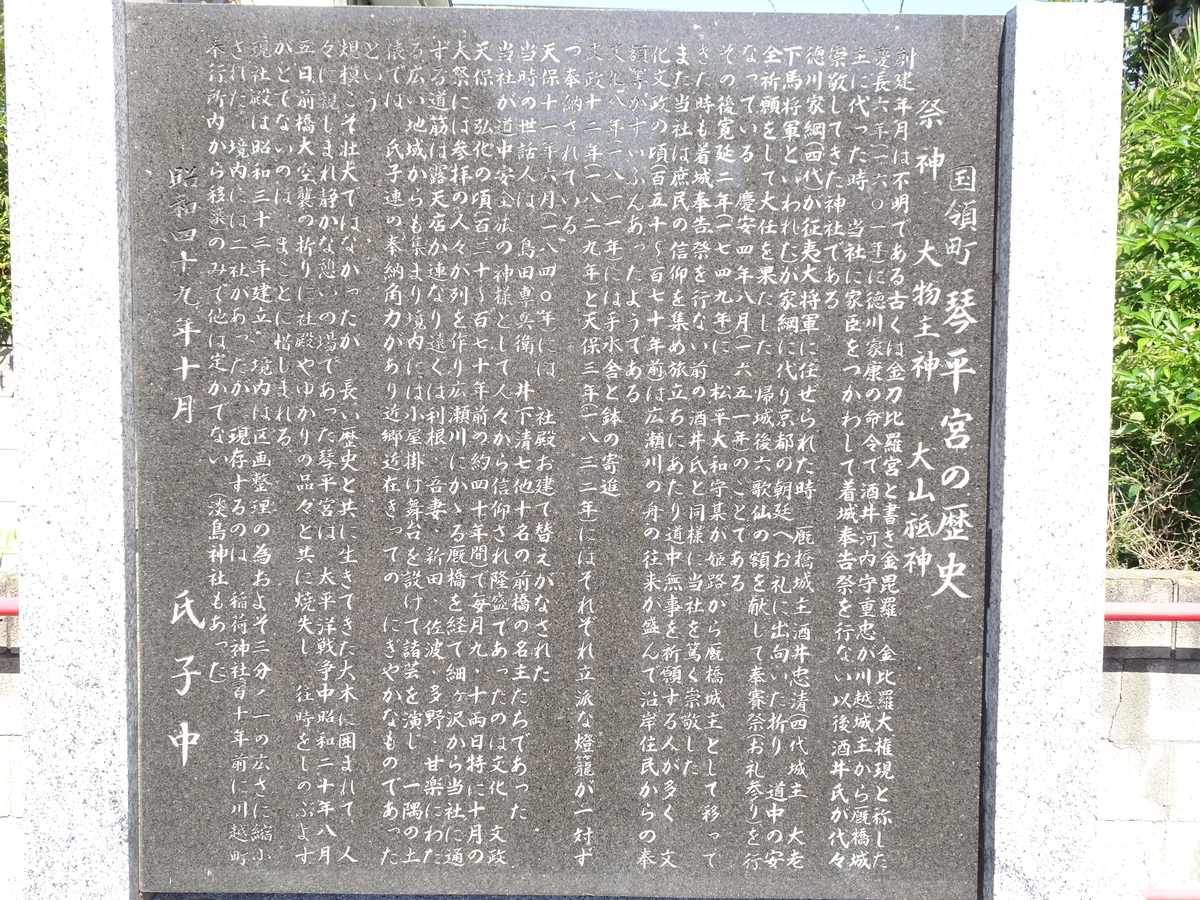 国領町 琴平宮の歴史
祭神 大物主神 大山祗神
創建年月は不明である古くは金刀比羅宮と書き金毘羅 金比羅大権現と称した
慶長六年(一六〇一年)に徳川家康の命令で酒井河内守重忠が川越城主から厩橋城
主に代った時、当社に家臣をつかわして着城奉告祭を行ない以後酒井氏が代々
崇敬してきた神社である
徳川家綱(四代)が征夷大将軍に任ぜられた時 厩橋城主酒井忠清四代城主 大老
下馬将軍といわれたが家綱に代り京都の朝廷へお礼に出向いた折り 道中の安
全祈願をして大任を果たした 帰城後六歌仙の額を献して奉賽祭(お礼参り)を行
なっている 慶安四年八月(一六五一年)のことである
その後寛延二年(一七四九年)に 松平大和守某が姫路から厩橋城主として移って
きた時も着城奉告祭を行ない前の酒井氏と同様に当社を篤く崇敬した
また当社は庶民の信仰を集め旅立ちにあたり道中無事を祈願する人が多く 文
化文政の頃(百五十〜百七十年前)は広瀬川の舟の往来が盛んで沿岸住民からの奉
額等がずいぶんあったようである
文化八年(一八一一年)には手水舎と鉢の寄進
文政十二年(一八二九年)と天保三年(一八三二年)にはそれぞれ立派な燈籠が一対ず
つ奉納されている
天保十一年六月(一八四〇年)には 社殿お建て替えがなされた
当時の世話人は 島田専兵衛 井下清七他十名の前橋の名主たちであった
当社が道中安全旅の神様として人々から信仰され隆盛であったのは文化 文政
天保 弘化の頃(百三十〜百七十年前の約四十年間)で毎月九、十両日特に十月の
大祭には参拝の人々が列を作り広瀬川にかゝる厩橋を経て細ヶ沢から当社に通
ずる道筋は露天店が連なり遠くは利根、吾妻 新田 佐波、多野、甘楽にわた
る広い地域からも集まり境内には小屋掛け舞台を設けて諸芸を演じ 一隅の土
俵では 氏子連の奉納角力があり近郷近在きっての にぎやかなものであった
という
規模こそ壮大ではなかったが 長い歴史と共に生きてきた大木に囲まれて 人
々に親しまれ静かな憩いの場であった琴平宮は 太平洋戦争中昭和二十年八月
五日前橋大空襲の折りに社殿やゆかりの品々と共に焼失し 往時をしのぶよす
がとてないのは まことに惜しまれる
現社殿は昭和三十三年建立、境内は区画整理の為およそ三分ノ一の広さに縮小
された、境内には二社があったが 現存するのは 稲荷神社百十年前に川越町
奉行所内から移築のみで他は定かでない (淡島神社もあった)
昭和四十九年十月 氏子中